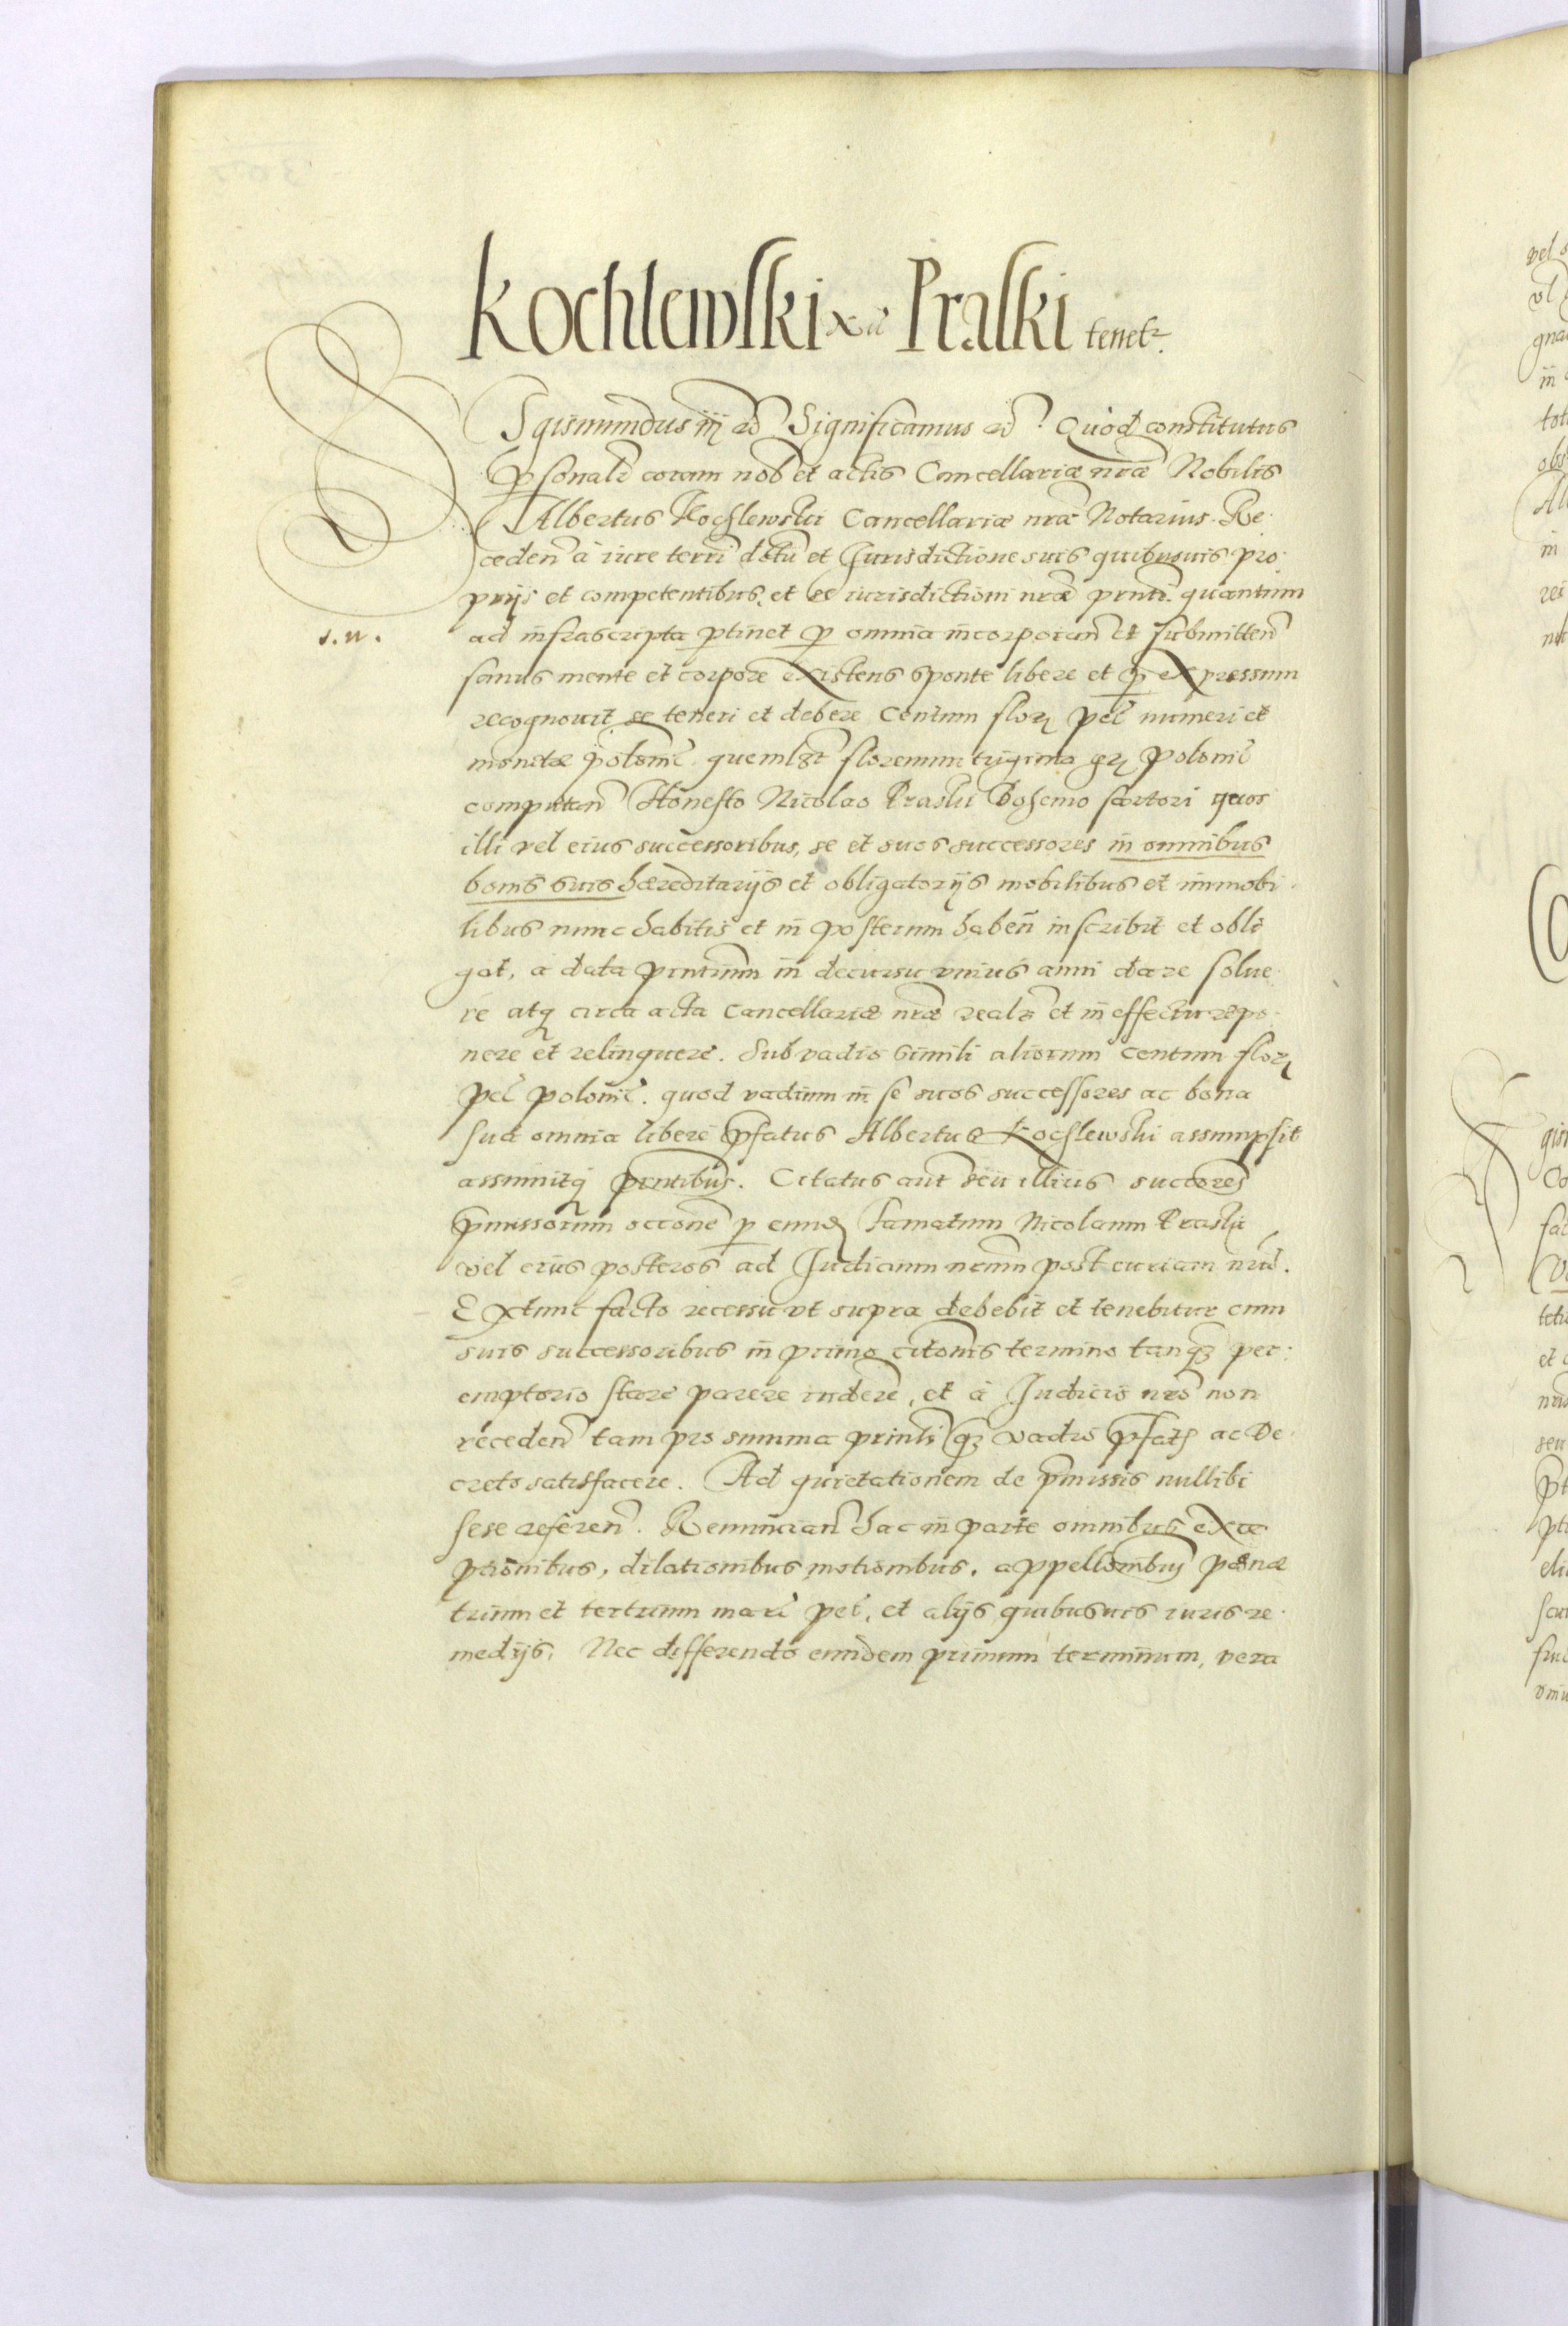 Kochlewski x a Praski tenetr.
Sigismundus iij &c Significamus &c. Quod constitutus
psonalr coram nob et actis Cancellariæ nræ Nobilis
Albertus Kochlewski Cancellariæ nræ Notarius. Re
ceden à iure terri dctu et Jurisdictione suis quibusuis pro
prijs et competentibus, et se iurisdictioni nræ prnti. quantum
s. n. ad infrascripta ptinet p omnia incorporan et submitten
sanus mente et corpore existens sponte libere et p expressum
recognouit se teneri et debere Centum flor pel numeri et
monetæ polonic. quemlbt florenum triginta gr polonic
computan Honesto Nicolao Praski Bohemo sartori quos
illi vel eius successoribus, se et suos successores in omnibus
bonis suis hæreditarijs et obligatorijs mobilibus et immobi
libus nunc habitis et in posterum haben inscribit et obli
gat, a data prntium in decursu vnius anni dare solue
re atq circa acta Cancellariæ nræ realr et in effectu repo
nere et relinquere. Sub vadio simili aliorum centum flor
pec polonic. quod vadium in se suos successores ac bona
sua omnia libere pfatus Albertus Kochlewski assumpsit
assumitq prntibus. Citatus aut seu illius succores
pmissorum occone p eund famatum Nicolaum Praski
vel eius posteros ad Judicium nrum post curiam nrm.
Extunc facto recessu vt supra debebit et tenebitur cum
suis successoribus in primo citonis termino tanq per:
emptorio stare parere iudere, et à Judicio nro non
receden tam pro summa prinli q vadio pfat ac De
creto satisfacere. Ad quietationem de pmissis nullibi
sese referen. Renuncian hac in parte omnibus exce
ptionibus, dilationibus motionibus, appellonibus pænæ
trium et tertrium marc pec, et alijs quibusuis iuris re
medijs, Nec differendo eundem primum terminum, vera